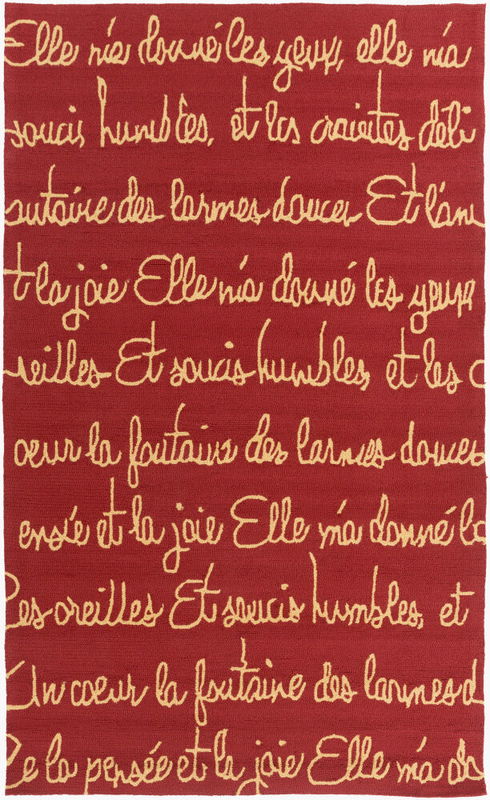 Elle m'a donné les yeux, elle m'a
soucis humbles, et les craintes déli
outaine des larmes douces Et l'am
t la joie Elle m'a donné les yeux
reilles Et soucis humbles, et les c
cœur la foutaine des larmes douces
ensée et la joie Elle m'a donné la
Les oreilles Et soucis humbles, et
Un coeur la foutaine des larmes d
De la pensée et la joie Elle m'a do